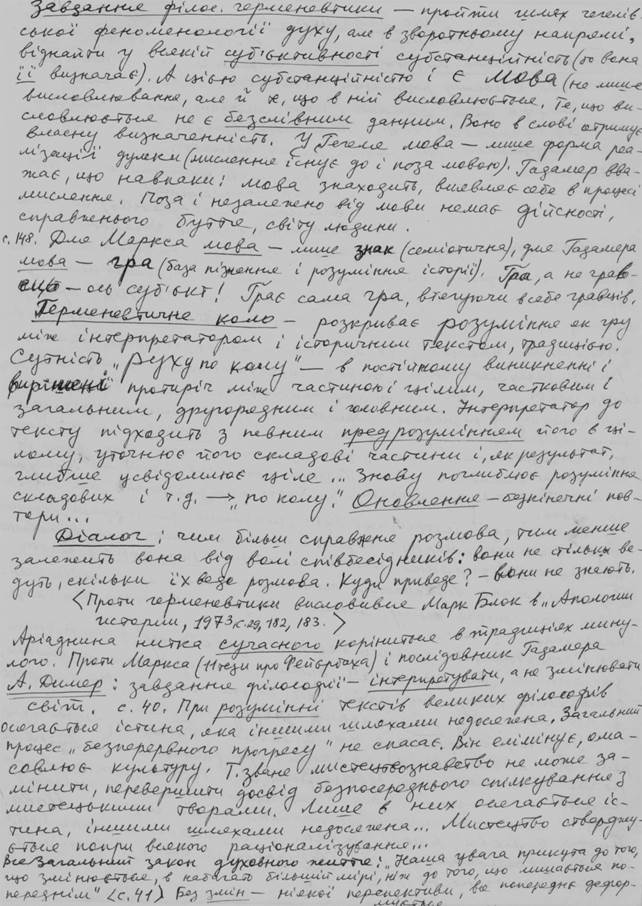 Завдання філос. герменевтики – пройти шлях гегелів-
ської феноменології духу, але в зворотньому напрямі,
віднайти у всякій суб'єктивності субстанційність (бо вона
її визначає). А цією субстанційністю і є мова (не лише
висловлювання, але й те, що в ній висловлюється. Те, що ви-
словлюється не є безслівним даним. Воно в слові отримує
власну визначенність. У Гегеля мова – лише форма реа-
лізації думки (мислення існує до і поза мовою). Гадамер вва-
жає, що навпаки: мова знаходить, виявляє себе в процесі
мислення. Поза і незалежно від мови немає дійсності,
справжнього буття, світу людини.
с. 148. Для Маркса мова – лише знак (семіотична), для Гадамера
мова – гра (база пізнання і розуміння історії). Гра, а не грав-
ець – ось суб'єкт! Грає сама гра, втягуючи в себе гравців.
Герменевтичне коло – розкриває розуміння як гру
між інтерпретатором і історичним текстом, традицією.
Сутність "руху по колу" – в постійному виникненні і
вирішенні протиріч між частиною і цілим, частковим і
загальним, другорядним і головним. Інтерпретатор до
тексту підходить з певним предрозумінням його в ці-
лому, уточнює його складові частини і, як результат,
глибше усвідомлює ціле... Знову поглиблює розуміння
складових і т.д. → "по колу". Оновлення – безкінечні пов-
тори...
Діалог: чим більш справжня розмова, тим менше
залежить вона від волі співбесідників: вони не стільки ве-
дуть, скільки їх веде розмова. Куди приведе? – вони не знають.
<Проти герменевтики висловився Марк Блок в "Апологии
истории, 1973 с. 29, 182, 183.>
Аріаднина нитка сучасного коріниться в традиціях мину-
лого. Проти Маркса (11 тези про Фейєрбаха) і послідовник Гадамера
А. Димер: завдання філософії – інтерпретувати, а не змінювати
світ. с. 40. При розумінні текстів великих філософів
осягається істина, яка іншими шляхами недосяжна. Загальний
процес "безперервного прогресу" не спасає. Він елімінує, ома-
совлює культуру. Т. зване мистецтвознавство не може за-
мінити, перевершити досвід безпосереднього спілкування з
мистецькими творами. Лише в них осягається іс-
тина, іншими шляхами недосяжна... Мистецтво стверджу-
ється попри всякого раціоналізування...
Все загальний закон духовного життя: "Наша увага прикута до того,
що змінюється, в набагато більшій мірі, ніж до того, що лишається по-
переднім" <с. 41> Без змін – ніякої перспективи, все попереднє дефор-
мується